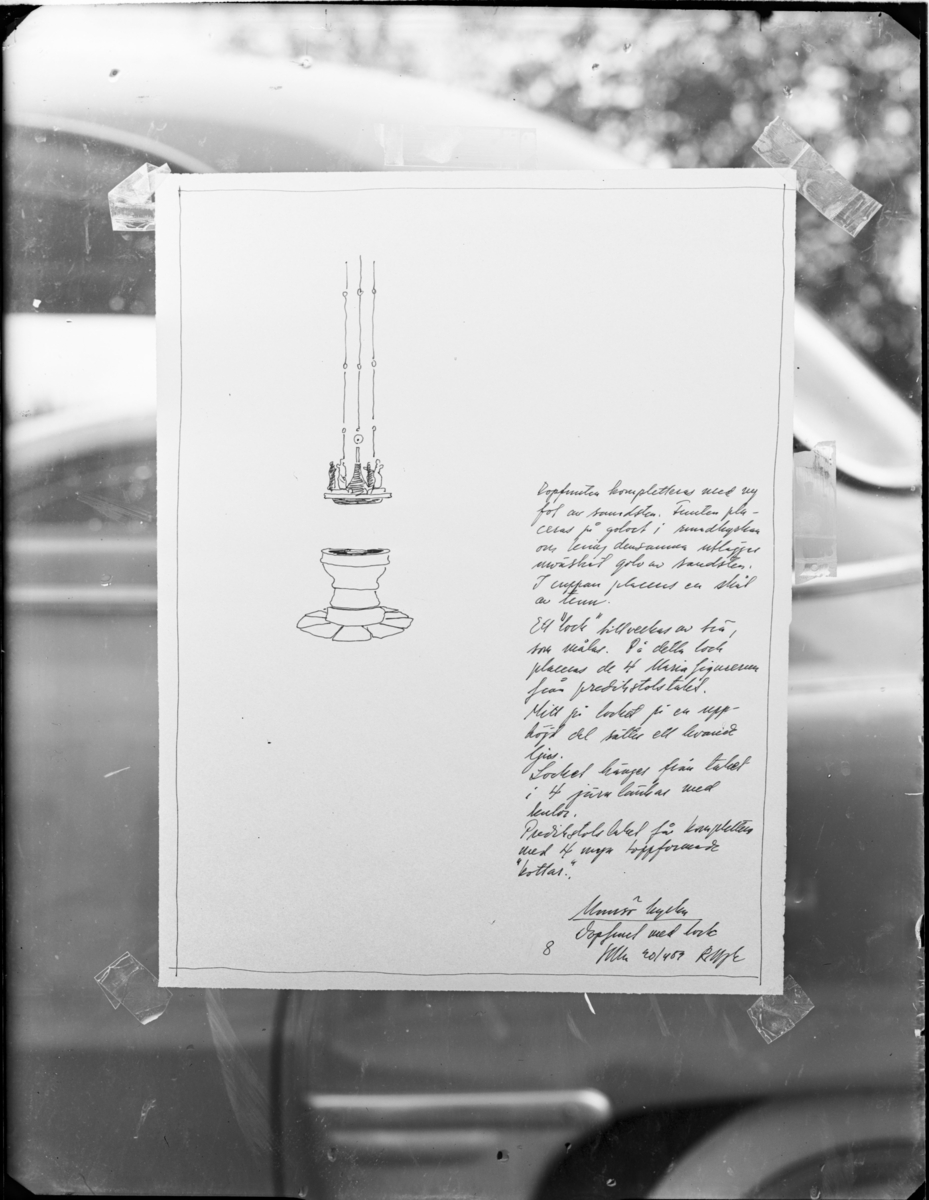 Dopfunten kompletteras med ny
fot av sandsten. Funten pla-
ceras på golvet i rundkyrkan
om kring densamma utlägges
golv av sandsten.
I cuppan placeras en skål
av tenn.
Ett "lock" tillverkas av trä,
som målas. På detta lock
placeras de 4 Mariafigurerna
från predikstolstaket.
Mitt på locket på en upp-
höjd del sättes ett levande
ljus.
Locket hänger från taket
i 4 järnlänkar med
kulor.
Predikstolstaket får kompletteras
med 4 nya toppformade
"kottar".
Munsö kyrka
Dopfunt med lock
8 20/4 59